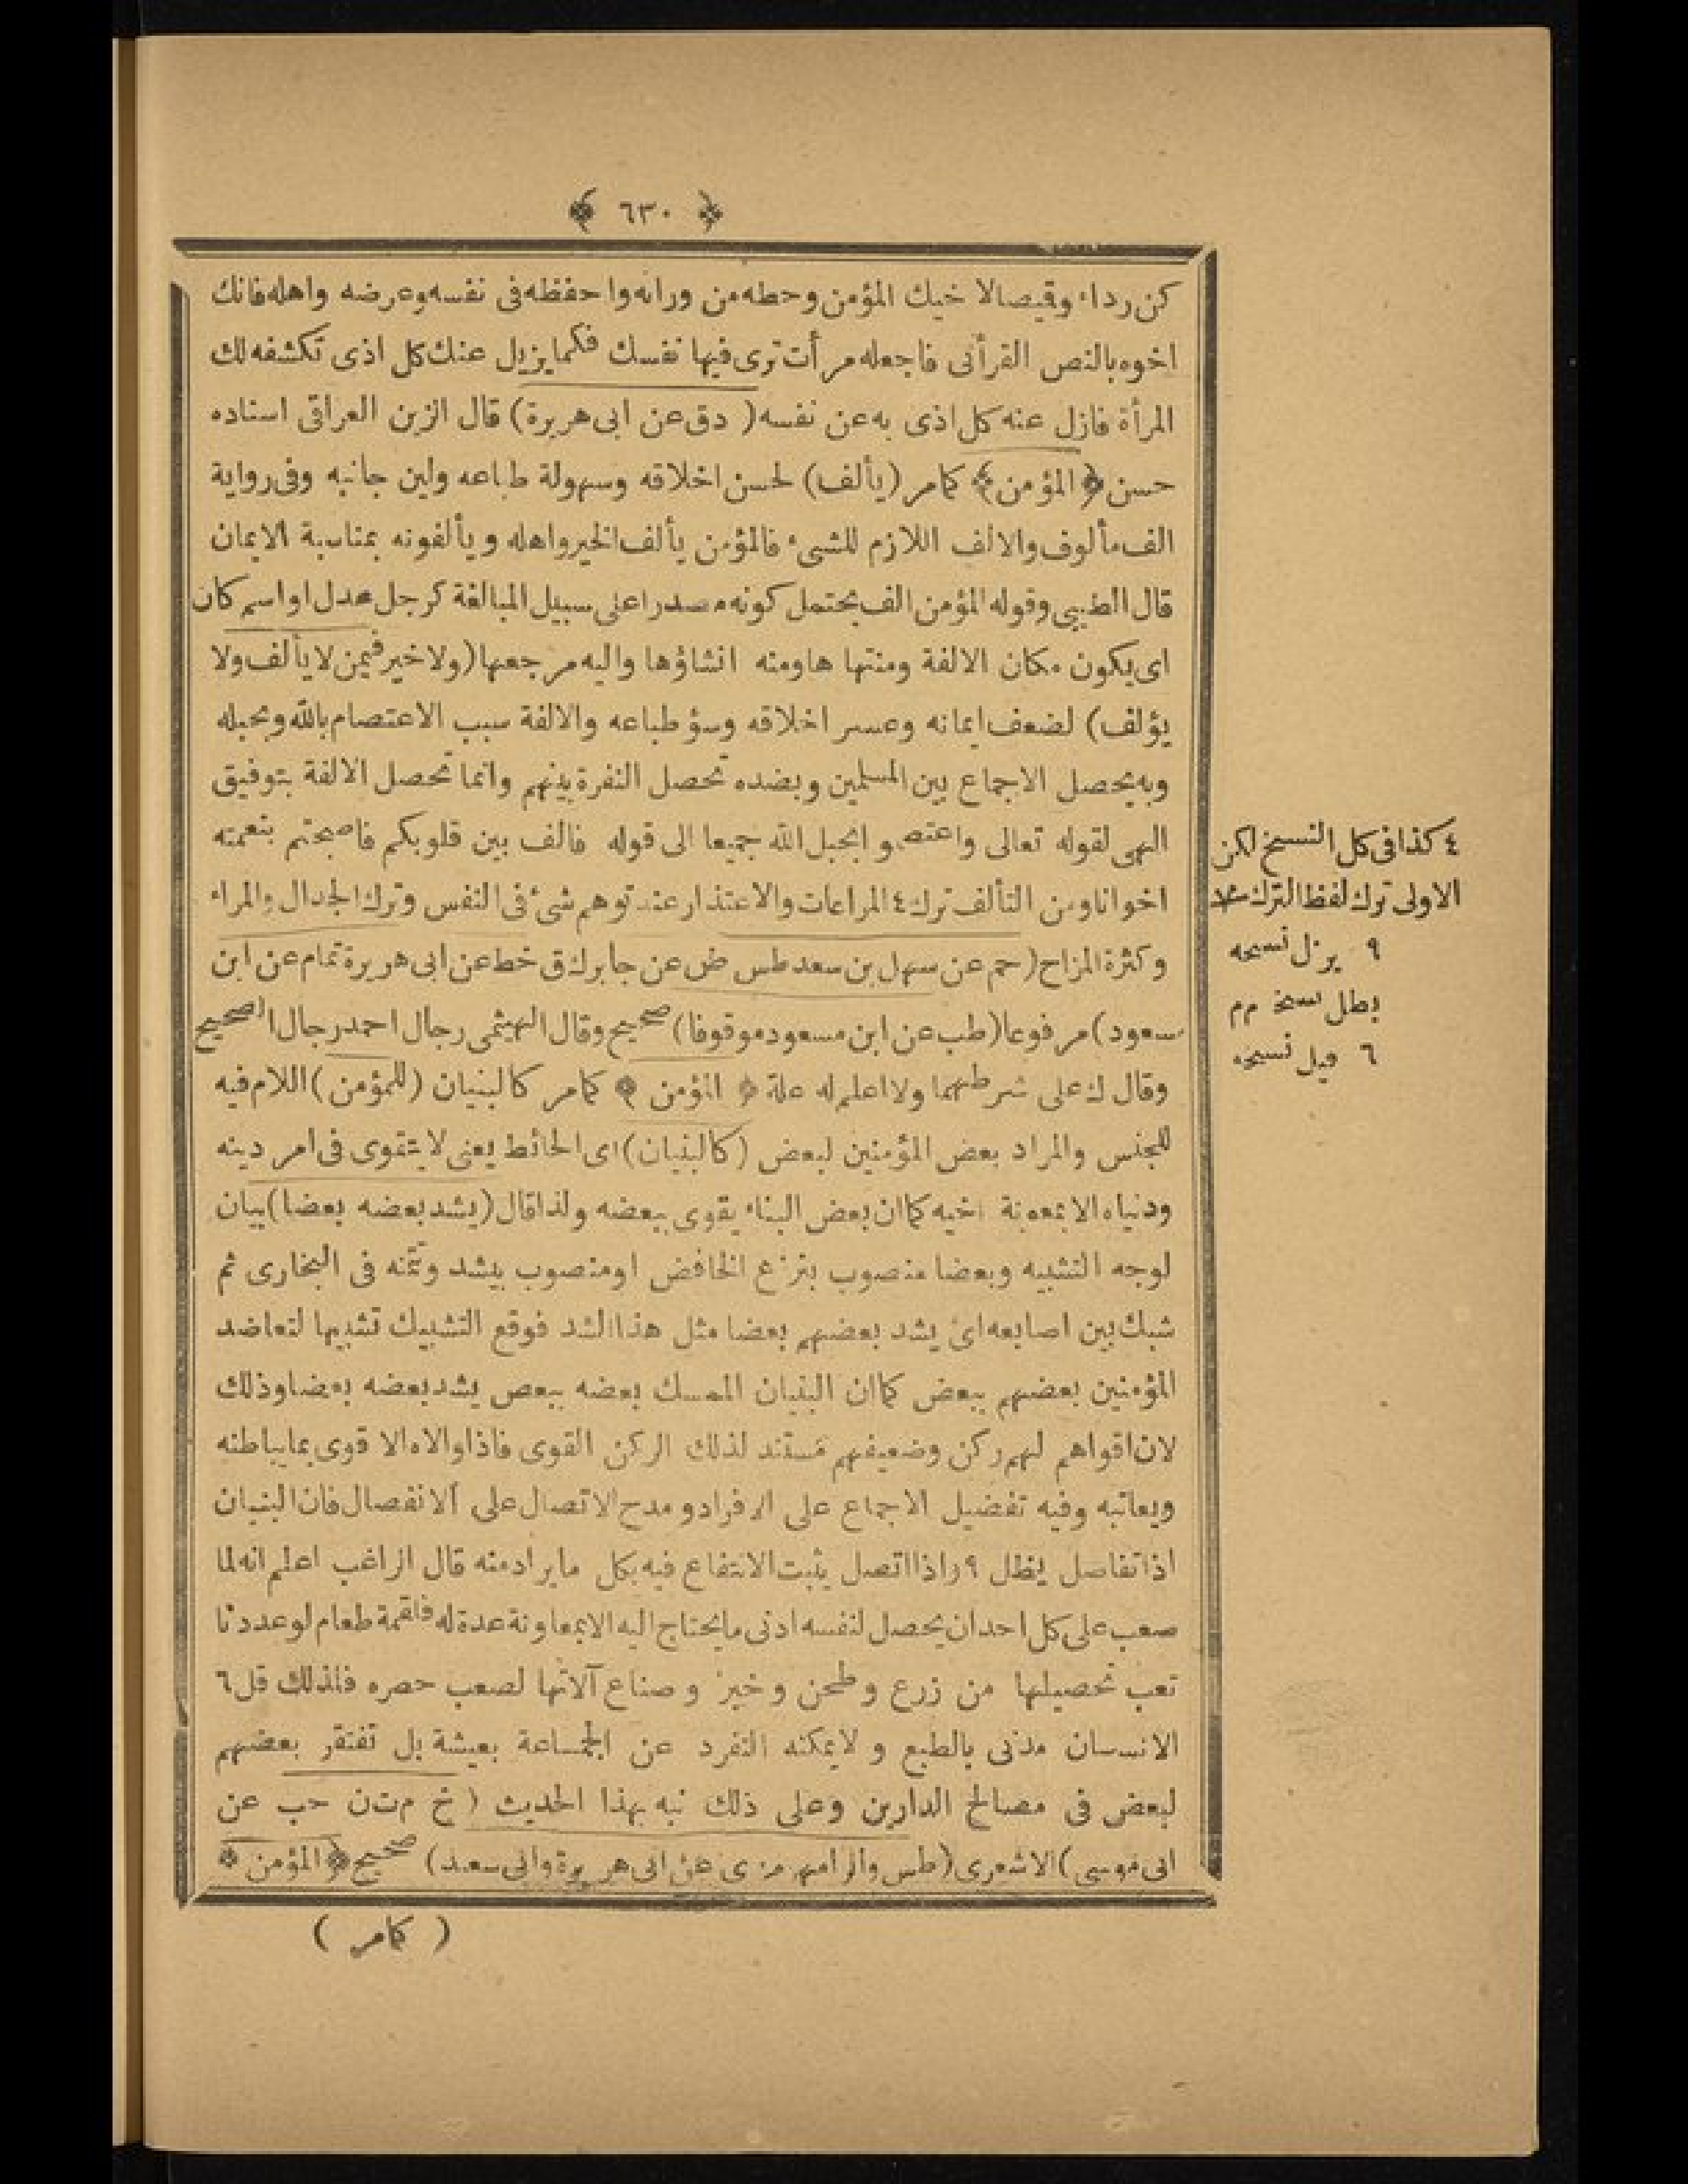 ﴿ ٦٣٠ ﴾
كن رداء وقيصالا خيك المؤمن وحطه من ورائه واحفظه فى نفسه وعرضه واهله فانك
اخوه بالنص القرأنى فاجعله مرأت ترى فيها نفسك فكما يزيل عنك كل اذى تكشفه لك
المرأة فازل عنه كل اذى به عن نفسه (دق عن ابى هريرة) قال الزين العراقى اسناده
حسن ﴿المؤمن﴾ كمامر (يألف) لحسن اخلاقه وسهولة طباعه ولين جانبه وفى رواية
الف مألوف والالف اللازم للشىء فالمؤمن يألف الخير واهله ويألفونه بمناسبة الايمان
قال الطيبى وقوله المؤمن الف يحتمل كونه مصدرا على سبيل المبالغة كرجل عدل او اسم كان
اى يكون مكان الالفة ومنتها هاومنه انشاؤها واليه مرجعها (ولا خير فيمن لا يألف ولا
يؤلف) لضعف ايمانه وعسر اخلاقه وسؤ طباعه والالفة سبب الاعتصام بالله وبحبله
وبه يحصل الاجماع بين المسلمين وبضده تحصل النفرة بينهم وانما تحصل الالفة بتوفيق
الهى لقوله تعالى واعتصموا بحبل الله جميعا الى قوله فالف بين قلوبكم فاصبحتم بنعمته
اخوانا ومن التألف ترك ٤ المراعات والاعتذار عند توهم شئ فى النفس وترك الجدال والمراء
وكثرة المزاح (حم عن سهل بن سعد طس ض عن جابر ك ق خط عن ابى هريرة تمام عن ابن
سعود) مرفوعا (طب عن ابن مسعود موقوفا) صحيح وقال الهيثمى رجال احمد رجال الصحيح
وقال ك على شرطهما ولا اعلم له علة ﴿المؤمن﴾ كمامر كالبنيان (للمؤمن) اللام فيه
للجنس والمراد بعض المؤمنين لبعض (كالبنيان) اى الحائط يعنى لا يتقوى فى امر دينه
ودنياه الا بمعونة اخيه كما ان بعض البناء يقوى ببعضه ولذا قال (يشد بعضه بعضا) بيان
لوجه التشبيه وبعضا منصوب بنزع الخافض او منصوب بيشد وتتمته فى البخارى ثم
شبك بين اصابعه اى يشد بعضهم بعضا مثل هذا الشد فوقع التشبيك تشبيها لتعاضد
المؤمنين بعضهم ببعض كما ان البنيان الممسك بعضه ببعص يشد بعضه بعضا وذلك
لان اقواهم لهم ركن وضعيفهم مستند لذلك الركن القوى فاذا والاه الا قوى بما يباطنه
ويعاتبه وفيه تفضيل الاجماع على الافراد ومدح الاتصال على الانفصال فان البنيان
اذا تفاصل يظل ٩ واذا اتصل يثبت الانتفاع فيه بكل مايراد منه قال الراغب اعلم انه لما
صعب على كل احد ان يحصل لنفسه ادنى ما يحتاج اليه الا بمعاونة عدة له فلقمة طعام لو عددنا
تعب تحصيلها من زرع وطحن وخبز وصناع آلاتها لصعب حصره فلذلك قل ٦
الانسان مدنى بالطبع و لا يمكنه التفرد عن الجماعة بعيشة بل تفتقر بعضهم
لبعض فى مصالح الدارين وعلى ذلك نبه بهذا الحديث (خ م ت ن حب عن
ابى موسى) الاشعرى (طس والرامهرمزى عن ابى هريرة وابى سعيد) صحيح ﴿المؤمن﴾
( كمامر )
٤ كذا فى كل النسخ لكن
الاولى ترك لفظ الترك
٩ يزل نسخه
بطل نسخ مم
٦ قيل نسخه